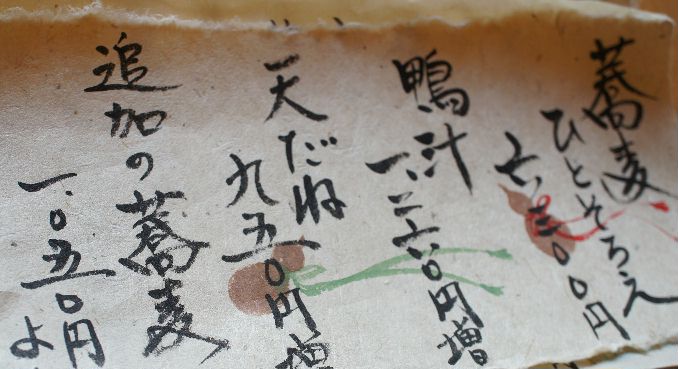 蕎麦
ひとそろえ
六、三〇〇円
鴨汁
一、二六〇円増
天だね
九五〇円増
追加の蕎麦
一、〇五〇円よ